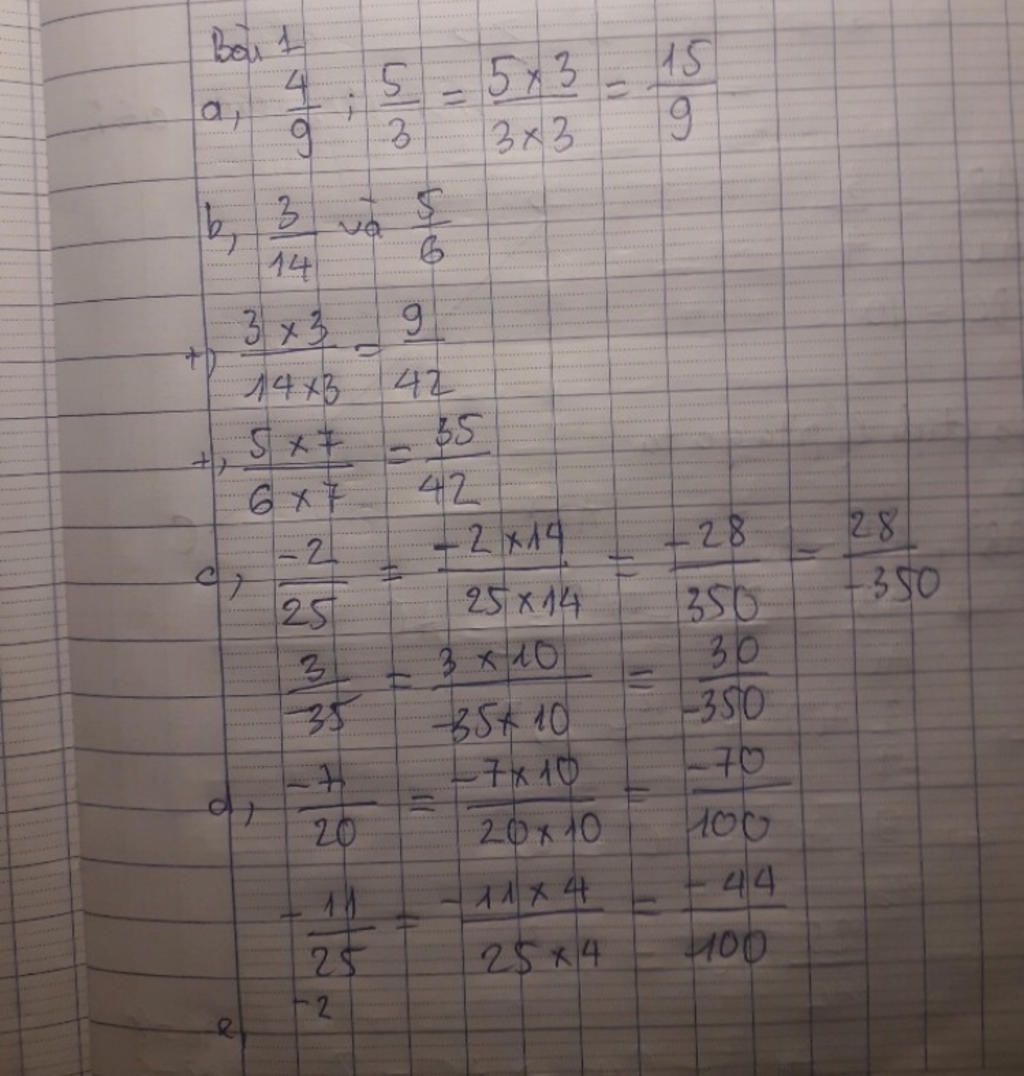 Bài 1
a, 4/9 ; 5/3 = 5 x 3/3 x 3 = 15/9
b, 3/14 và 5/6
+, 3 x 3/14 x 3 = 9/42
+, 5 x 7/6 x 7 = 35/42
c, -2/25 = -2 x 14/25 x 14 = -28/350 = 28/-350
3/-35 = 3 x 10/-35 x 10 = 30/-350
d, -7/20 = -7 x 10/20 x 10 = -70/100
-11/25 = -11 x 4/25 x 4 = -44/100
e, -2